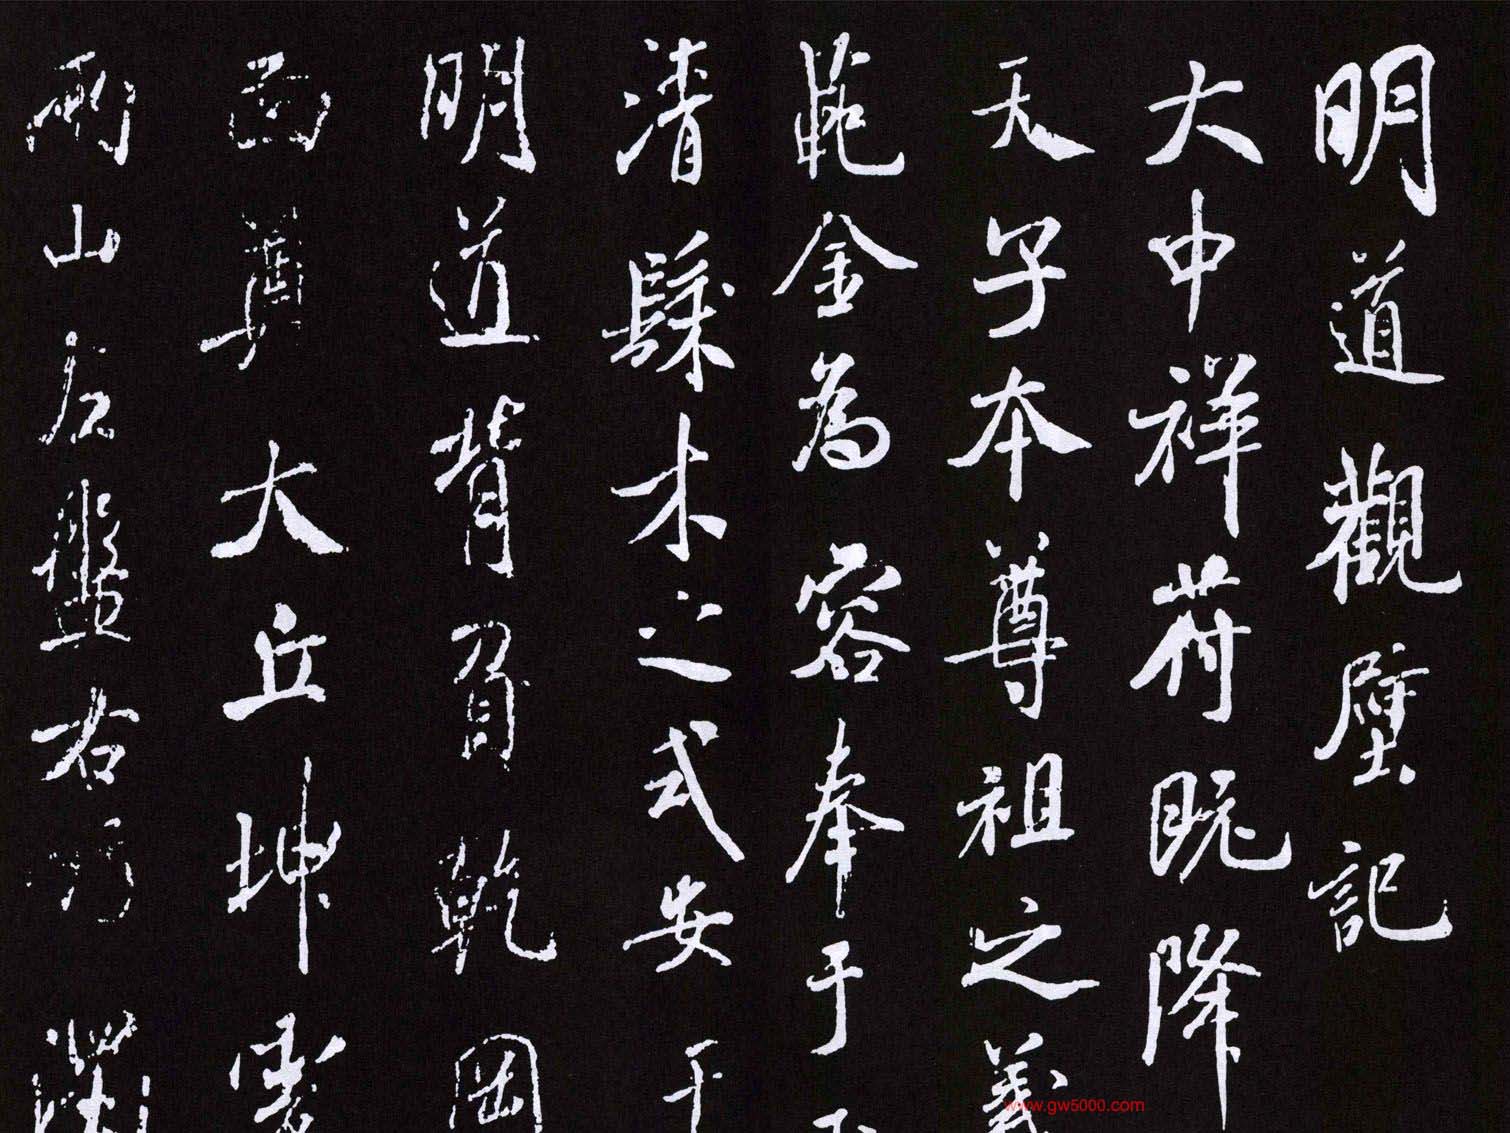 明道觀壁記
大中祥符既降
天子本尊祖之義
範金為容奉于
清縣木之式安于
明道背負乾岡
西尊大丘坤
山後盤右
www.gw5000.com